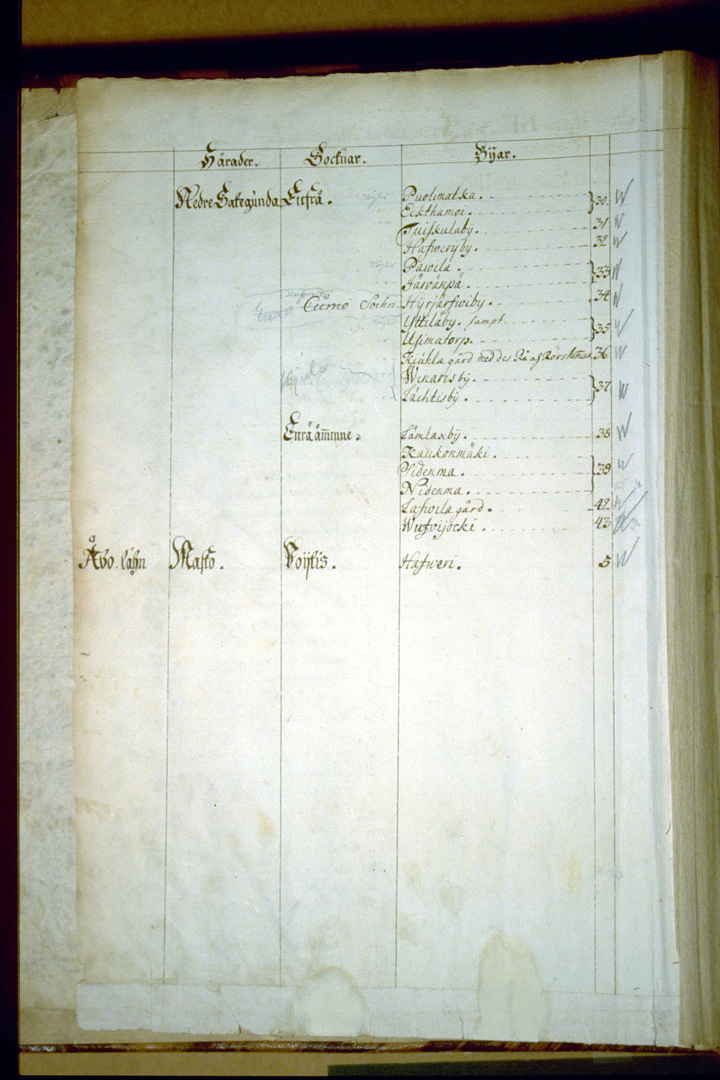 Härader. Socknar. Byar.
Nedre Satagunda Eufrå. Puolimatka. 30.
Eckthamoi.
Tuiskulaby. 31
Hafweryby. 32
Pawila. 33
Järvänpä.
Ciemo Sochn Hyrjärfwiby. 34
Yttiläby. sampt 35
Uximatorp.
Kiuhla gård med des Rå 36
Winarisby. 37
Lächtisby.
Euråäminne. Lämlaxby. 38
Kaukonmäki.
Pidenma. 39
Nidenma.
Lafwila gård. 42
Wufwijocki. 43
Åbo lähn Masko. Pöijtis. Hafweri. 5